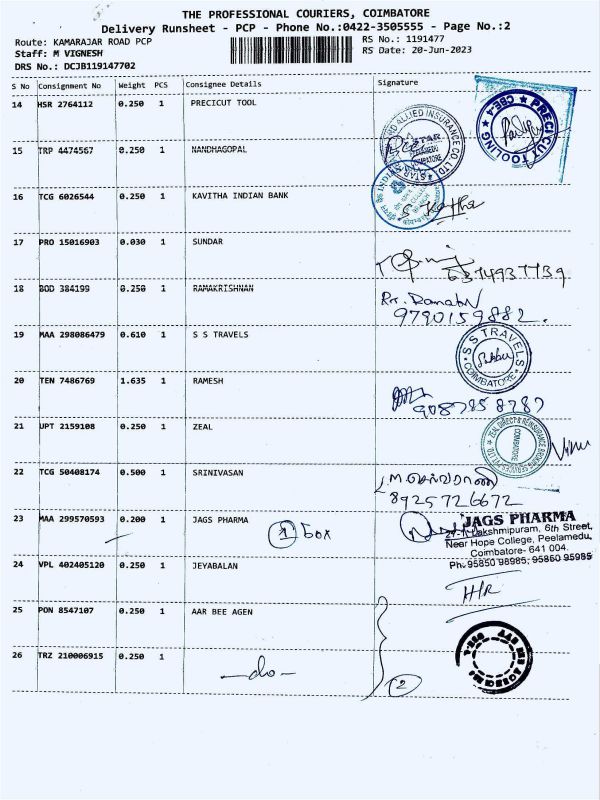 THE PROFESSIONAL COURIERS, COIMBATORE
Delivery Runsheet - PCP - Phone No.:0422-3505555 - Page No.:2
Route: KAMARAJAR ROAD PCP RS No.: 1191477
Staff: M VIGNESH RS Date: 20-Jun-2023
DRS No.: DCJB119147702
S No Consignment No Weight PCS Consignee Details Signature
14 HSR 2764112 0.250 1 PRECICUT TOOL
PRECICUT TOOLING CBE-4
15 TRP 4474567 0.250 1 NANDHAGOPAL
STAR AND ALLIED INSURANCE CO. LTD
16 TCG 6026544 0.250 1 KAVITHA INDIAN BANK
17 PRO 15016903 0.030 1 SUNDAR
6374937739
18 BOD 384199 0.250 1 RAMAKRISHNAN
9790159882.
19 MAA 298086479 0.610 1 S S TRAVELS
S S TRAVELS COIMBATORE
20 TEN 7486769 1.635 1 RAMESH
9087858787
21 UPT 2159108 0.250 1 ZEAL
22 TCG 50408174 0.500 1 SRINIVASAN
M செல்வராணி
8925726672
23 MAA 299570593 0.200 1 JAGS PHARMA
1 Box
JAGS PHARMA
Lakshmipuram, 6th Street,
Near Hope College, Peelamedu,
Coimbatore- 641 004.
Ph: 95850 98985, 95850 95985
24 VPL 402405120 0.250 1 JEYABALAN
25 PON 8547107 0.250 1 AAR BEE AGEN
26 TRZ 210006915 0.250 1 -do-
2